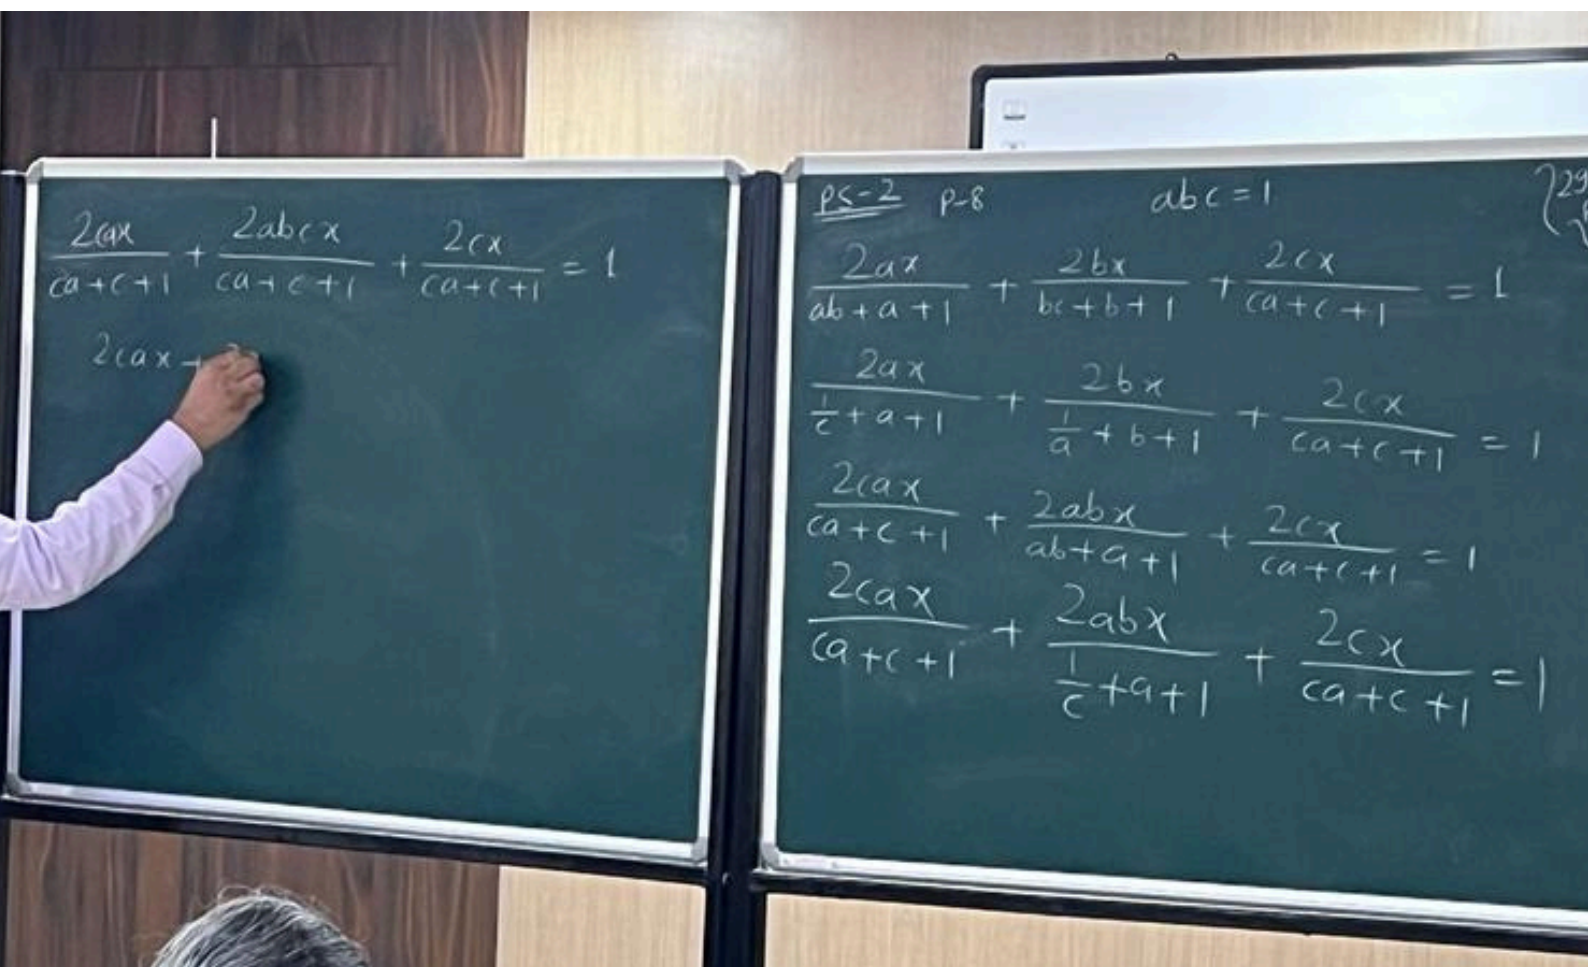 2cax/(ca+c+1) + 2abcx/(ca+c+1) + 2cx/(ca+c+1) = 1
2cax +
PS-2 P-8 abc=1
2ax/(ab+a+1) + 2bx/(bc+b+1) + 2cx/(ca+c+1) = 1
2ax/(1/c+a+1) + 2bx/(1/a+b+1) + 2cx/(ca+c+1) = 1
2cax/(ca+c+1) + 2abx/(ab+a+1) + 2cx/(ca+c+1) = 1
2cax/(ca+c+1) + 2abx/(1/c+a+1) + 2cx/(ca+c+1) = 1